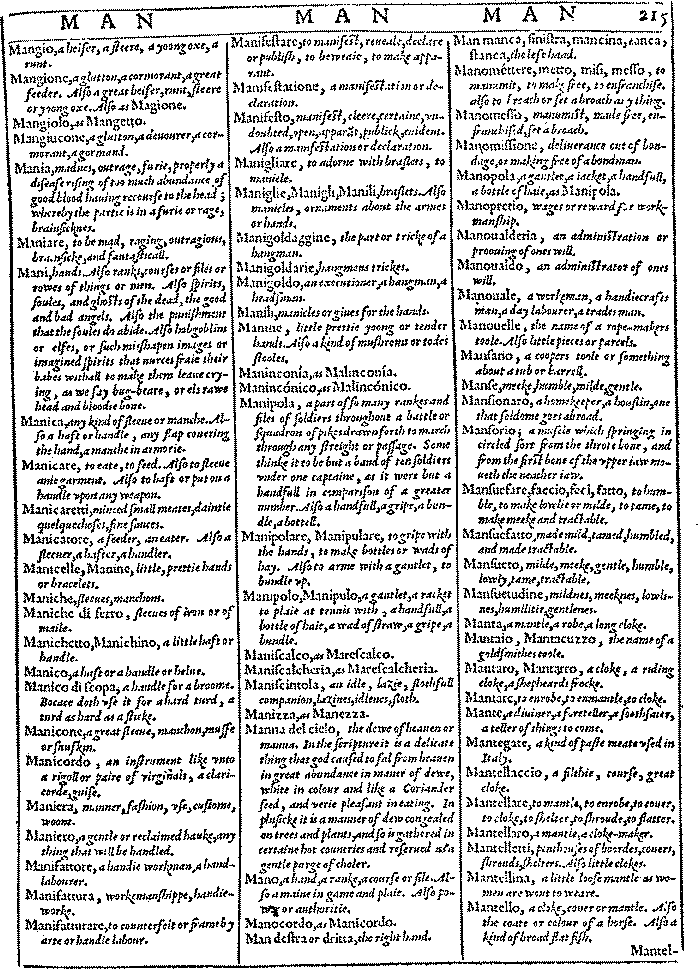 MAN MAN MAN 215
Mangio, a heifer, a steere, a yoong oxe, a
runt.
Mangione, a glutton, a cormorant, a great
feeder. Also a great heifer, runt, steere
or yoong oxe. Also as Magione.
Mangiolo, as Mangetto.
Mangiucone, a glutton, a deuourer, a cor-
morant, a gormand.
Mania, madnes, outrage, furie, properly a
disease rising of too much abundance of
good blood hauing recourse to the head;
whereby the partie is in a furie or rage,
brainsicknes.
Maniare, to be mad, raging, outragious,
brainsicke, and fantasticall.
Mani, hands. Also ranks, courses or files or
rowes of things or men. Also spirits,
soules, and ghosts of the dead, the good
and bad angels. Also the punishment
that the soules do abide. Also hobgoblins
or elfes, or such misshapen images or
imagined spirits that nurces fraie their
babes withall to make them leaue cry-
ing, as we say bug-beare, or els rawe
head and bloodie bone.
Manica, any kind of sleeue or manche. Al-
so a haft or handle, any flap couering
the hand, a manche in armorie.
Manicare, to eate, to feed. Also to sleeue
anie garment. Also to haft or put on a
handle vpon any weapon.
Manicaretti, minced small meates, daintie
quelquechoses, fine sauces.
Manicatore, a feeder, an eater. Also a
sleeuer, a hafter, a handler.
Manicelle, Manine, little, prettie hands
or bracelets.
Maniche, sleeues, manchons.
Maniche di ferro, sleeues of iron or of
maile.
Manichetto, Manichino, a little haft or
handle.
Manico, a haft or a handle or helue.
Manico di scopa, a handle for a broome.
Bocace doth vse it for a hard turd, a
turd as hard as a sticke.
Manicone, a great sleeue, manchon, muffe
or snufkin.
Manicordo, an instrument like vnto
a rigoll or paire of virginals, a clari-
corde, guise.
Maniera, manner, fashion, vse, custome,
woont.
Maniero, a gentle or reclaimed hauke, any
thing that will be handled.
Manifattore, a handie workman, a hand-
labourer.
Manifattura, workemanshippe, handie-
worke.
Manifatturare, to counterfeit or frame by
arte or handie labour.
Manifestare, to manifest, reueale, declare
or publish, to bewraie, to make appa-
rant.
Manifestatione, a manifestation or de-
claration.
Manifesto, manifest, cleere, certaine, vn-
doubted, open, apparāt, publick, euident.
Also a manifestation or declaration.
Manigliare, to adorne with braslets, to
manicle.
Maniglie, Manigli, Manili, braslets. Also
manicles, ornaments about the armes
or hands.
Manigoldaggine, the part or tricke of a
hangman.
Manigoldarie, hangmans trickes.
Manigoldo, an executioner, a hangman, a
headsman.
Manili, manicles or giues for the hands.
Manine, little prettie yoong or tender
hands. Also a kind of mushroms or todes
stooles.
Maninconía, as Malinconía.
Manincónico, as Malincónico.
Manipola, a part of so many rankes and
files of soldiers throughout a battle or
squadron of pikes drawn forth to march
through any streight or passage. Some
thinke it to be but a band of ten soldiers
vnder one captaine, as it were but a
handfull in comparison of a greater
number. Also a handfull, a gripe, a bun-
dle, a bottell.
Manipolare, Manipulare, to gripe with
the hands, to make bottles or wads of
hay. Also to arme with a gantlet, to
bundle vp.
Manipolo, Manipulo, a gantlet, a racket
to plaie at tennis with, a handfull, a
bottle of haie, a wad of straw, a gripe, a
bundle.
Maniscalco, as Marescalco.
Maniscalcheria, as Marescalcheria.
Maniscintola, an idle, lazie, slothfull
companion, lazines, idlenes, sloth.
Manizza, as Manezza.
Manna del cielo, the dewe of heauen or
manna. In the scripture it is a delicate
thing that god caused to fal from heauen
in great abundance in maner of dewe,
white in colour and like a Coriander
seed, and verie pleasant in eating. In
phisicke it is a manner of dew congealed
on trees and plants, and so is gathered in
certaine hot countries and reserued as a
gentle purge of choler.
Mano, a hand, a ranke, a course or file. Al-
so a maine in game and plaie. Also po-
wer or authoritie.
Manocordo, as Manicordo.
Man destra or dritta, the right hand.
Man manca, sinistra, mancina, zanca,
stanca, the left hand.
Manométtere, metto, misi, messo, to
manumit, to make free, to enfranchise.
also to broach or set a broach as y thing.
Manomesso, manumist, made free, en-
franchised, set a broach.
Manomissione, deliuerance out of bon-
dage, or making free of a bondman.
Manopola, a gantlet, a iacket, a handfull,
a bottle of haie, as Manipola.
Manopretio, wages or reward for work-
manship.
Manoualderia, an administration or
proouing of ones will.
Manoualdo, an administrator of ones
will.
Manouale, a workeman, a handiecrafts
man, a day labourer, a trades man.
Manouelle, the name of a rope-makers
toole. Also little pieces or parcels.
Mansano, a coopers toole or something
about a tub or barrell.
Manse, meeke, humble, milde, gentle.
Mansionaro, a homekeeper, a houslin, one
that seldome goes abroad.
Mansorio, a muscle which springing in
circled sort from the throte bone, and
from the first bone of the vpper iaw mo-
ueth the neather iaw.
Mansuefare, faccio, feci, fatto, to hum-
ble, to make lowlie or milde, to tame, to
make meeke and tractable.
Mansuefatto, made mild, tamed, humbled,
and made tractable.
Mansueto, milde, meeke, gentle, humble,
lowly, tame, tractable.
Mansuetudine, mildnes, meeknes, lowli-
nes, humilitie, gentlenes.
Manta, a mantle, a robe, a long cloke.
Mantaio, Mantacuzzo, the name of a
goldsmithes toole.
Mantaro, Mantarro, a cloke, a riding
cloke, a shepheards frocke.
Mantare, to enrobe, to enmantle, to cloke.
Mante, a diuiner, a foreteller, a soothsaier,
a teller of things to come.
Mantegate, a kind of paste meate vsed in
Italy.
Mantellaccio, a filthie, course, great
cloke.
Mantellare, to mantle, to enrobe, to couer,
to cloke, to shelter, to shroude, to flatter.
Mantellaro, a mantle, a cloke-maker.
Mantelletti, penthouses of boordes, couers,
shrouds, shelters. Also little clokes.
Mantellina, a little loose mantle as wo-
men are wont to weare.
Mantello, a cloke, couer or mantle. Also
the coate or colour of a horse. Also a
kind of broad flat fish.
Mantel-